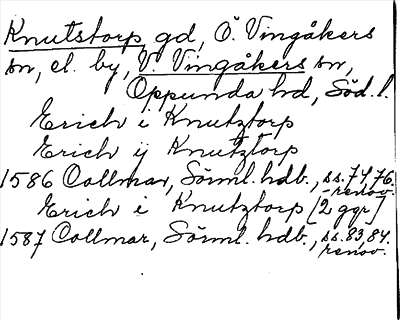 Knutstorp gd, Ö. Vingåkers
sn, el. by, V. Vingåkers sn,
Oppunda hd, Söd. l.
Erich i Knutztorp
Erich ij Knutztorp
1586 Collmar, Sörml. hdb., ss. 74, 76.
renov.
Erich i Knutztorp [2 ggr]
1587 Collmar, Sörml. hdb., ss. 83, 84.
renov.